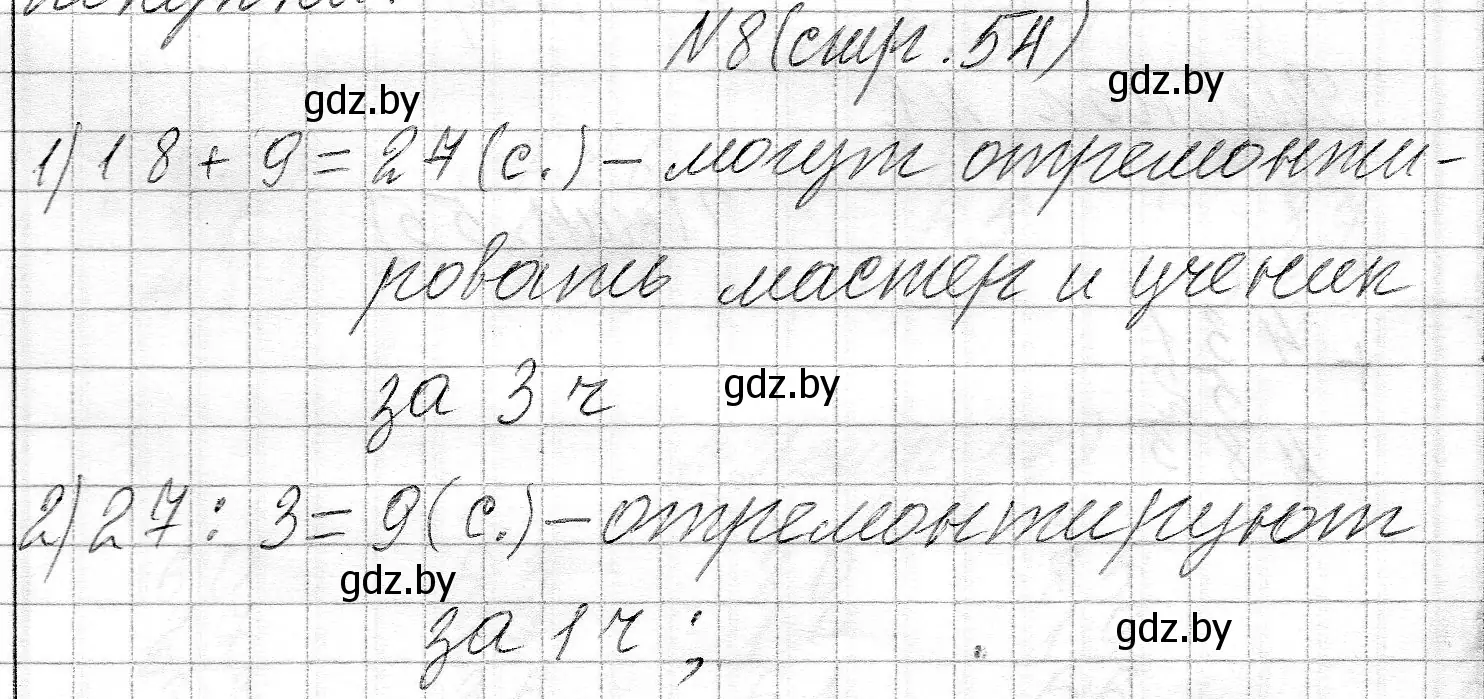 N8(стр.54)
gdz.by
gdz.by
1) 18 + 9 = 27 (с.) – могут отремонти-
ровать мастер и ученик
за 3 ч
gdz.by
2) 27 : 3 = 9 (с.) – отремонтируют
gdz.by
за 1 ч ;
gdz.by